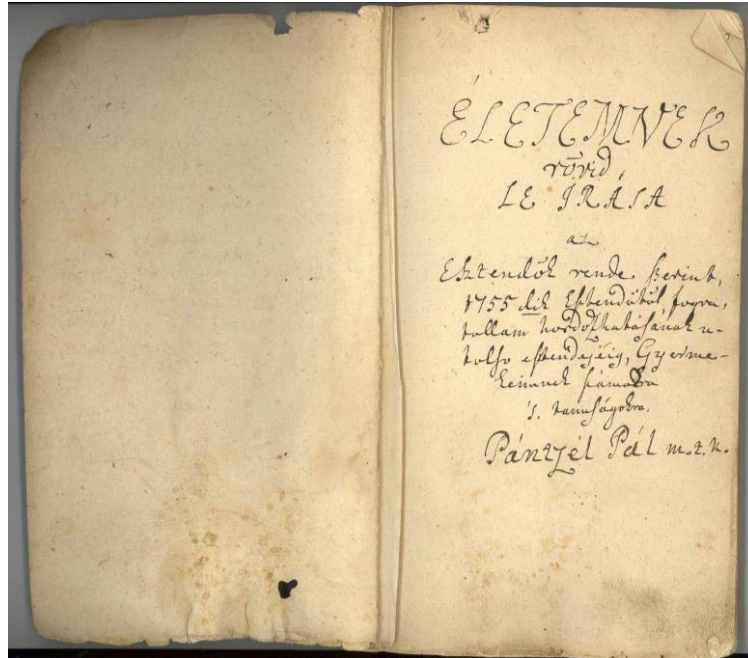 ÉLETEMNEK
rövid,
LE IRÁSA
az
Esztendők rende szerint,
1755dik Esztendőtől fogva,
tollam hordozhatásának u-
tolso esztendejéig, Gyerme-
keimnek számokra
's tanuságokra.
Pántzél Pál m. t. k.